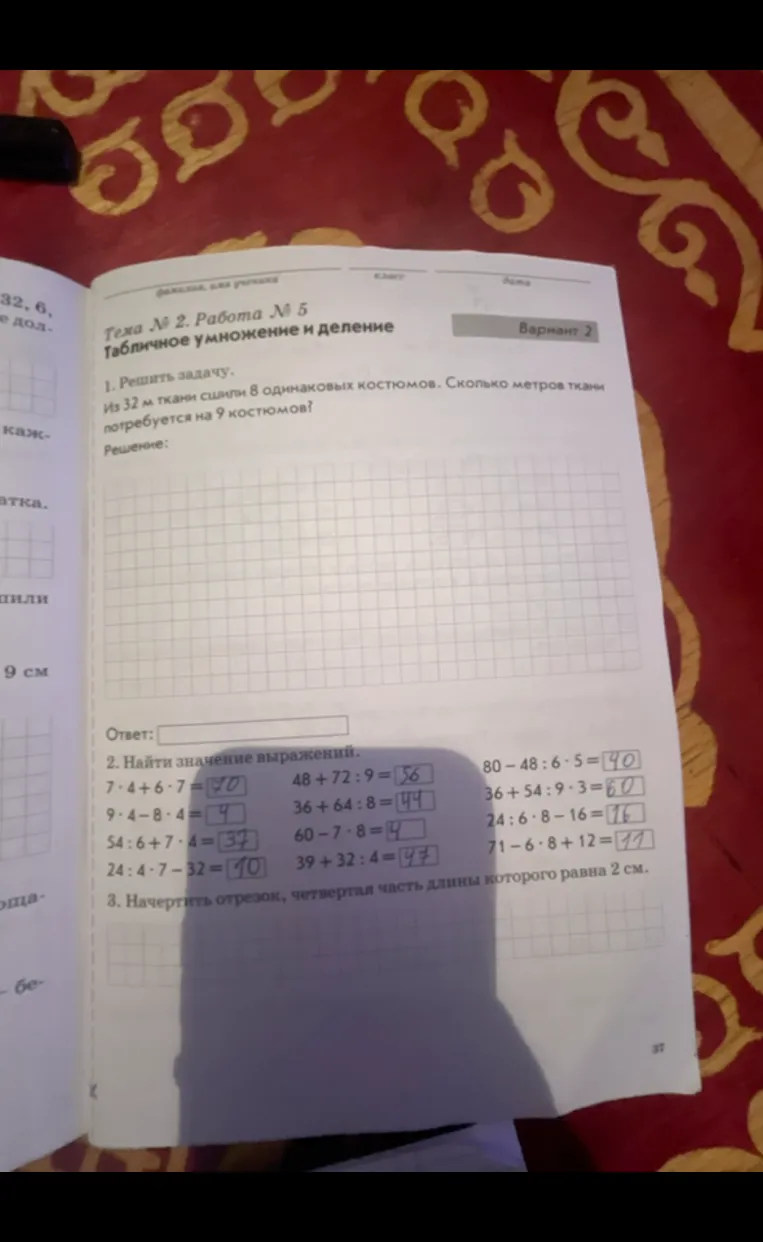 32, 6,
е дол-
каж-
атка.
шили
9 см
оща-
- бе-
фамилия, имя ученика
класс
дата
Тема № 2. Работа № 5
Табличное умножение и деление
Вариант 2
1. Решить задачу.
Из 32 м ткани сшили 8 одинаковых костюмов. Сколько метров ткани
потребуется на 9 костюмов?
Решение:
Ответ:
2. Найти значение выражений.
7 · 4 + 6 · 7 = 70
48 + 72 : 9 = 56
80 – 48 : 6 · 5 = 40
9 · 4 – 8 · 4 = 4
36 + 64 : 8 = 44
36 + 54 : 9 · 3 = 60
54 : 6 + 7 · 4 = 37
60 – 7 · 8 = 4
24 : 6 · 8 – 16 = 16
24 : 4 · 7 – 32 = 10
39 + 32 : 4 = 47
71 – 6 · 8 + 12 = 11
3. Начертить отрезок, четвертая часть длины которого равна 2 см.
37